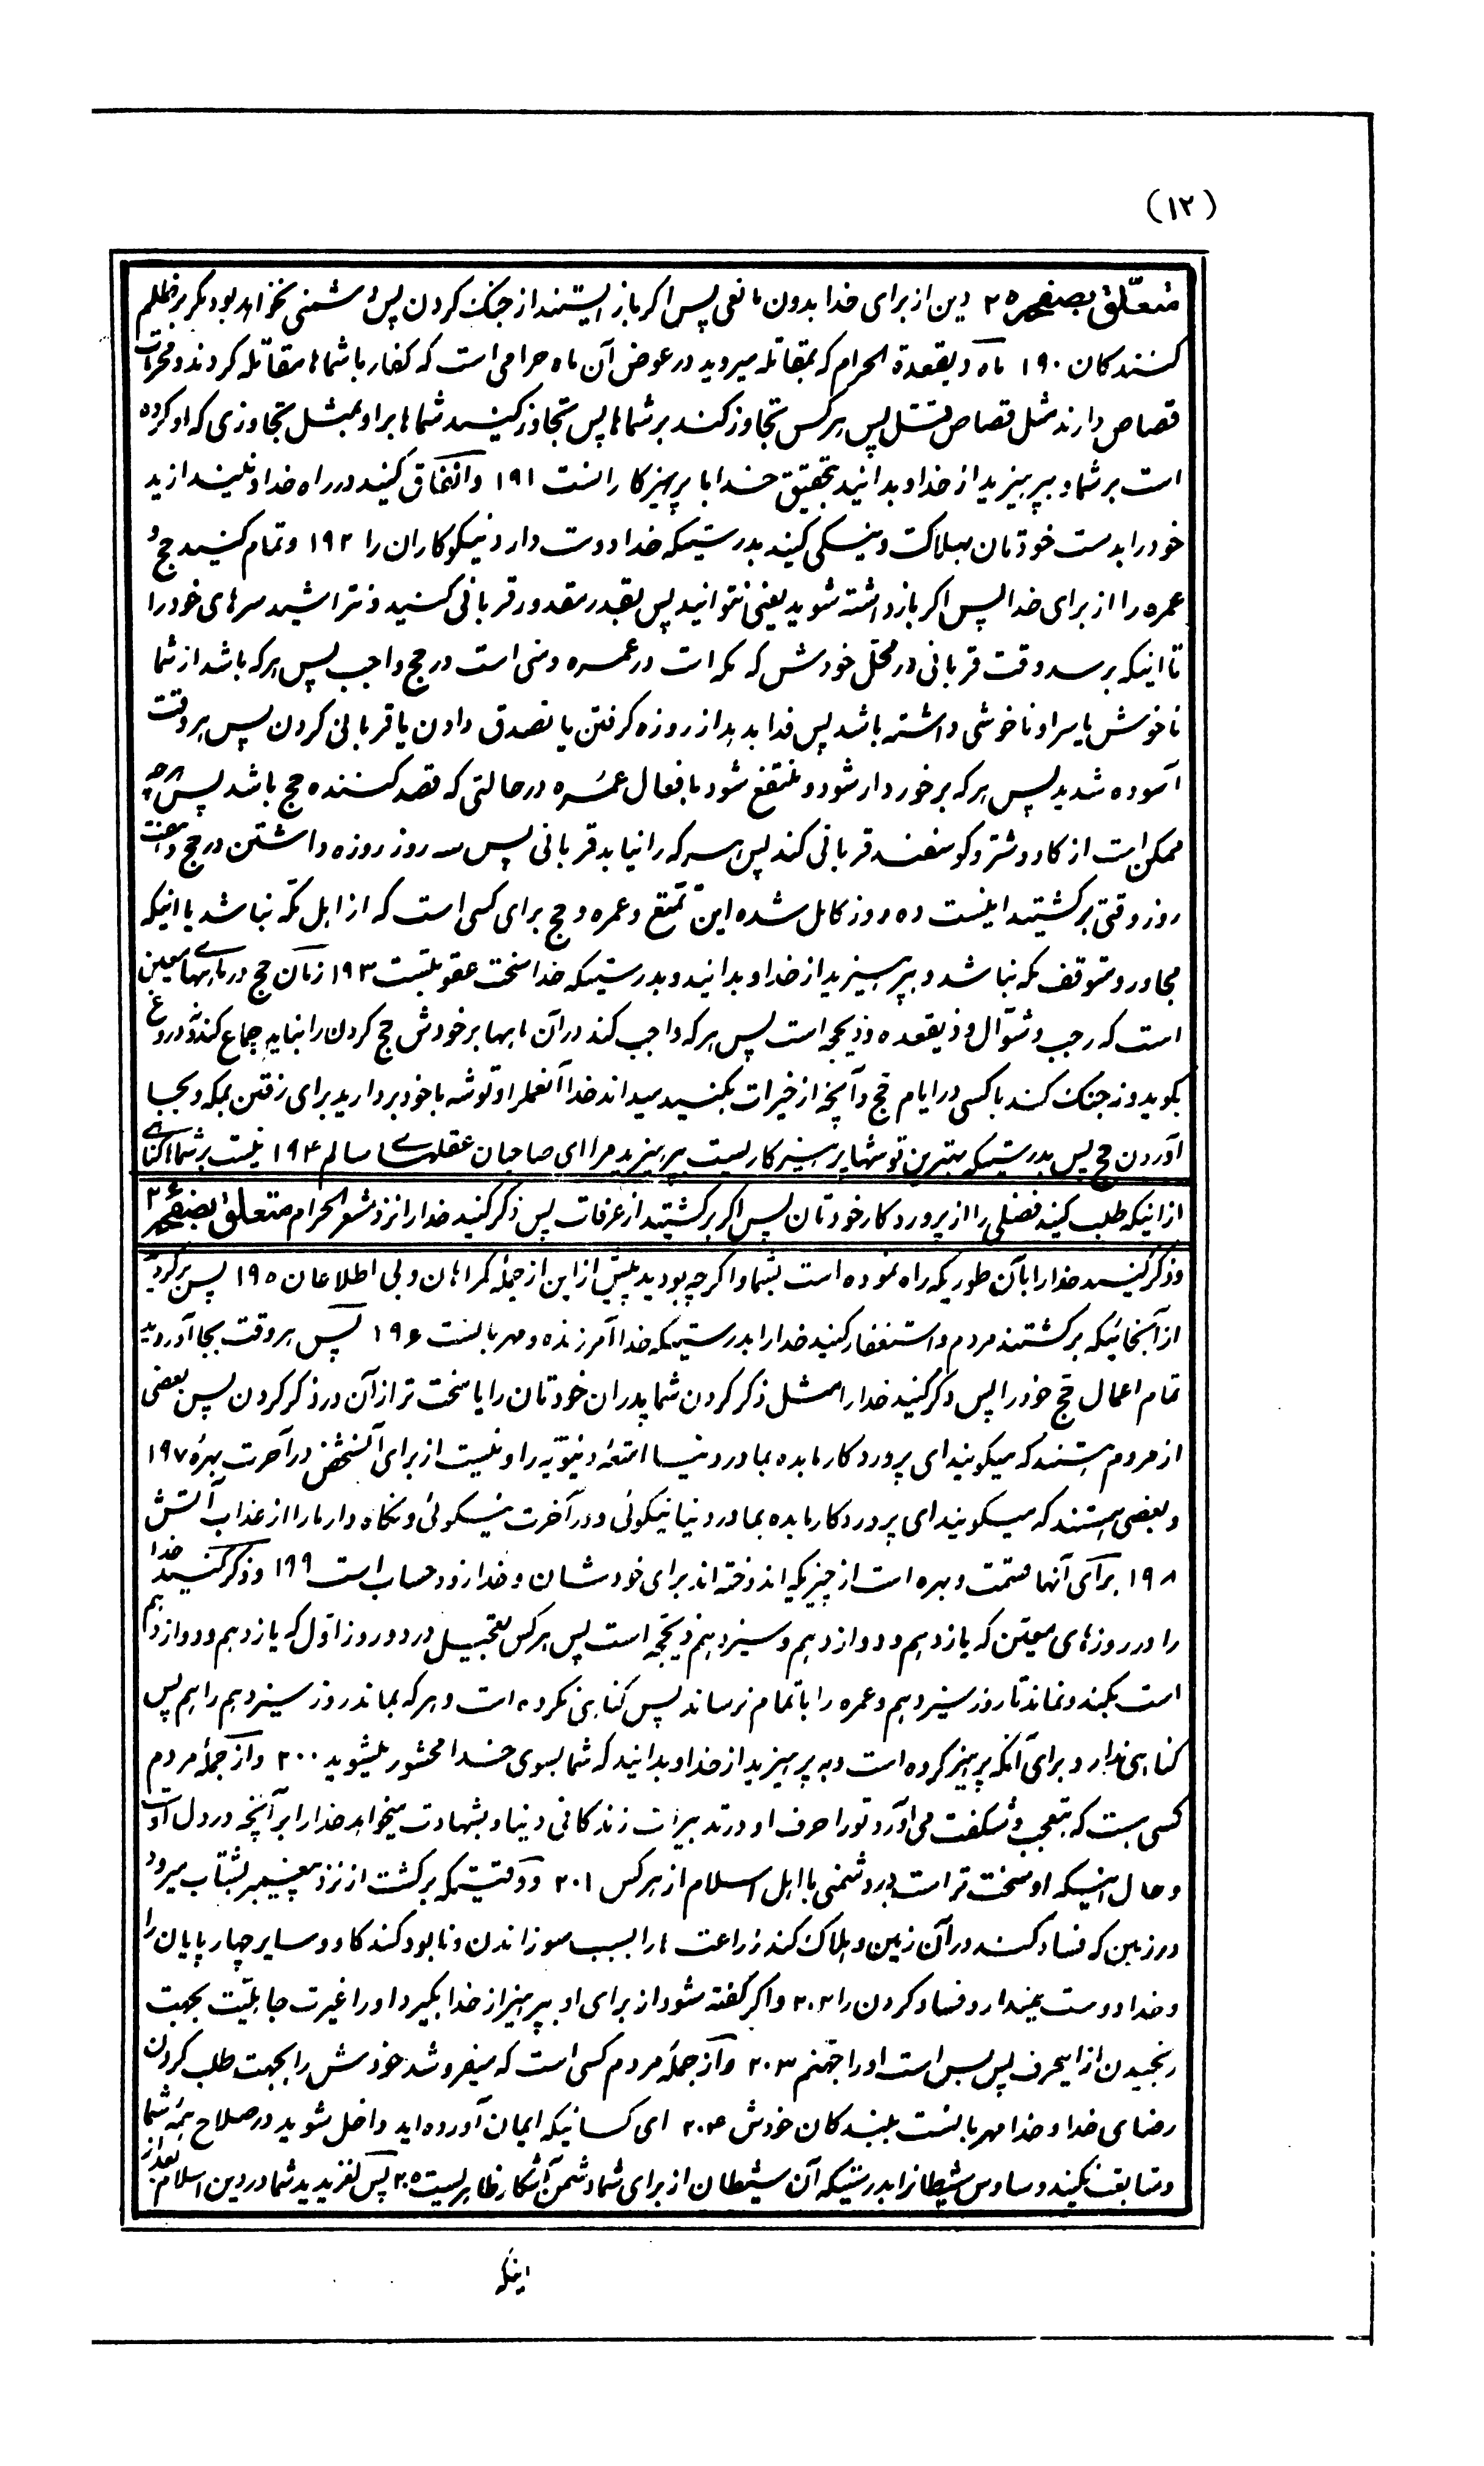 (۱۲)
متعلّق بصفحه ۲۵ دین از برای خدا بدون مانعی پس اکر باز ایستند از جنک کردن پس دشمنی نخواهد بود مکر بر ظلم
کنندکان ۱۹۰ ماه ذیقعدة الحرام که بمقاتله میروید در عوض آن ماه حرامی است که کفار با شماها مقاتله کردند و محرمات
قصاص دارند مثل قصاص قتل پس هرکس تجاوز کند بر شماها پس تجاوز کنید شماها بر او بمثل تجاوزی که او کرده
است بر شما و بپرهیزید از خدا و بدانید بتحقیق خدا با پرهیزکارانست ۱۹۱ و انفاق کنید در راه خدا و نیندازید
خود را بدست خودتان بهلاکت و نیکی کنید بدرستیکه خدا دوست دارد نیکوکاران را ۱۹۲ و تمام کنید حج و
عمره را از برای خدا پس اکر بازداشته شوید یعنی نتوانید پس بقدر مقدور قربانی کنید و نتراشید سرهای خود را
تا اینکه برسد وقت قربانی در محل خودش که مکه است در عمره و منی است در حج واجب پس هرکه باشد از شما
ناخوش یا بسر او ناخوشی داشته باشد پس فدا بدهد از روزه کرفتن یا تصدق دادن یا قربانی کردن پس هر وقت
آسوده شدید پس هرکه برخوردار شود و منتفع شود بافعال عمره در حالتی که قصد کننده حج باشد پس هرچه
ممکن است از کاو و شتر و کوسفند قربانی کند پس هرکه را نیابد قربانی پس سه روز روزه داشتن در حج و هفت
روز وقتی برکشتید اینست ده روز کامل شده این تمتع و عمره و حج برای کسی است که از اهل مکه نباشد یا اینکه
مجاور و متوقف مکه نباشد و بپرهیزید از خدا و بدانید و بدرستیکه خدا سخت عقوبتست ۱۹۳ زمان حج در ماههای معین
است که رجب و شوال و ذیقعده و ذیحجه است پس هرکه واجب کند در آن ماهها بر خودش حج کردن را نباید جماع کند و دروغ
بکوید و نه جنک کند با کسی در ایام حج و آنچه از خیرات بکنید میداند خدا آنعمل را و توشه با خود بردارید برای رفتن بمکه و بجا
آوردن حج پس بدرستیکه بهترین توشها پرهیزکاریست بپرهیزید مرا ای صاحبان عقلهای سالم ۱۹۴ نیست بر شما کناهی
از اینکه طلب کنید فضلی را از پروردکار خودتان پس اکر برکشتید از عرفات پس ذکر کنید خدا را نزد مشعر الحرام متعلق بصفحه ۲۶
و ذکر کنید خدا را بآن طوریکه راه نموده است بشما و اکرچه بودید پیش از این از جملهٔ کمراهان و بی اطلاعان ۱۹۵ پس برکردید
از آنجائیکه برکشتند مردم و استغفار کنید خدا را بدرستیکه خدا آمرزنده و مهربانست ۱۹۶ پس هر وقت بجا آوردید
تمام اعمال حج خود را پس ذکر کنید خدا را مثل ذکر کردن شما پدران خودتان را یا سخت تر از آن در ذکر کردن پس بعضی
از مردم هستند که میکویند ای پروردکار ما بده بما در دنیا امتعهٔ دنیویه را و نیست از برای آنشخص در آخرت بهرهٔ ۱۹۷
و بعضی هستند که میکویند ای پروردکار ما بده بما در دنیا نیکوئی و در آخرت نیکوئی و نکاه دار ما را از عذاب آتش
۱۹۸ برای آنها قسمت و بهره است از چیزیکه اندوخته اند برای خودشان و خدا زود حساب است ۱۹۹ و ذکر کنید خدا
را در روزهای معین که یازدهم و دوازدهم و سیزدهم ذیحجه است پس هرکس تعجیل در دو روز اول که یازدهم و دوازدهم
است بکند و نماند تا روز سیزدهم و عمره را باتمام نرساند پس کناهی نکرده است و هرکه بماند روز سیزدهم را هم پس
کناهی ندارد برای آنکه پرهیز کرده است و بپرهیزید از خدا و بدانید که شما بسوی خدا محشور میشوید ۲۰۰ و از جملهٔ مردم
کسی هست که بتعجب و شکفت می آورد تو را حرف او در تدبیرات زندکانی دنیا و بشهادت میخواهد خدا را بر آنچه در دل اوست
و حال اینکه او سخت تر است در دشمنی با اهل اسلام از هرکس ۲۰۱ و وقتیکه برکشت از نزد پیغمبر بشتاب میرود
در زمین که فساد کند در آن زمین و هلاک کند زراعت ها را بسبب سوزاندن و نابود کند کاو و سایر چهارپایان را
و خدا دوست نمیدارد فساد کردن را ۲۰۲ و اکر کفته شود از برای او بپرهیز از خدا بکیرد او را غیرت جاهلیت بجهت
رنجیدن از اینحرف پس بس است او را جهنم ۲۰۳ و از جملهٔ مردم کسی است که میفروشد خودش را بجهت طلب کردن
رضای خدا و خدا مهربانست ببندکان خودش ۲۰۴ ای کسانیکه ایمان آورده اید داخل شوید در صلاح همهٔ شما
و متابعت نکنید وساوس شیطانرا بدرستیکه آن شیطان از برای شما دشمن آشکار ظاهریست ۲۰۵ پس لغزیدید شما در دین اسلام بعد از
اینکه